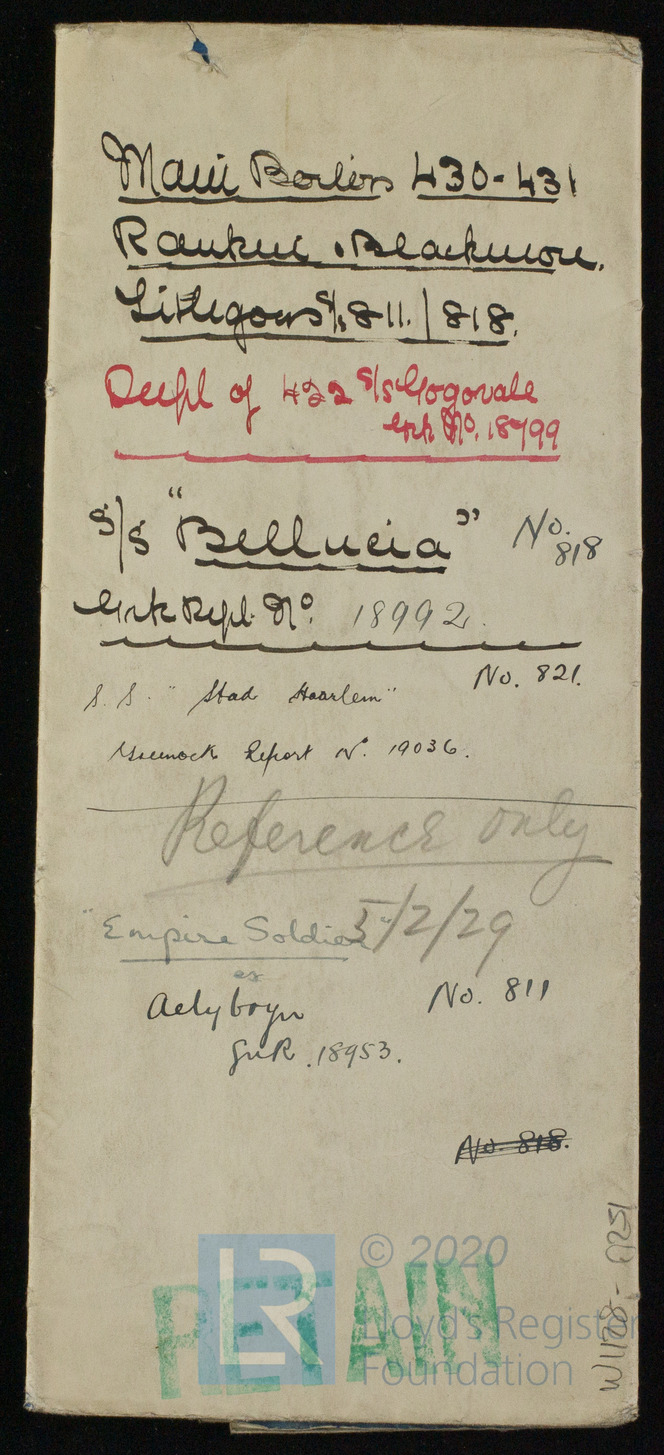 Main Boilers 430-431
Rankin & Blackmore.
Lithgows S/s. 811. / 818.
Dupl of 422 S/S Gogovale
Grk No. 18799
S/S "Bellucia" No. 818
Grk Rept. No. 18992.
No. 821.
S.S. "Stad Haarlem"
Greenock Report No. 19036.
Reference only
"Empire Soldier" 5/2/29
ex
No. 811
GnR. 18953.
No. 818.
RETAIN
LR
© 2020
Lloyd's Register
Foundation
W1178-0251